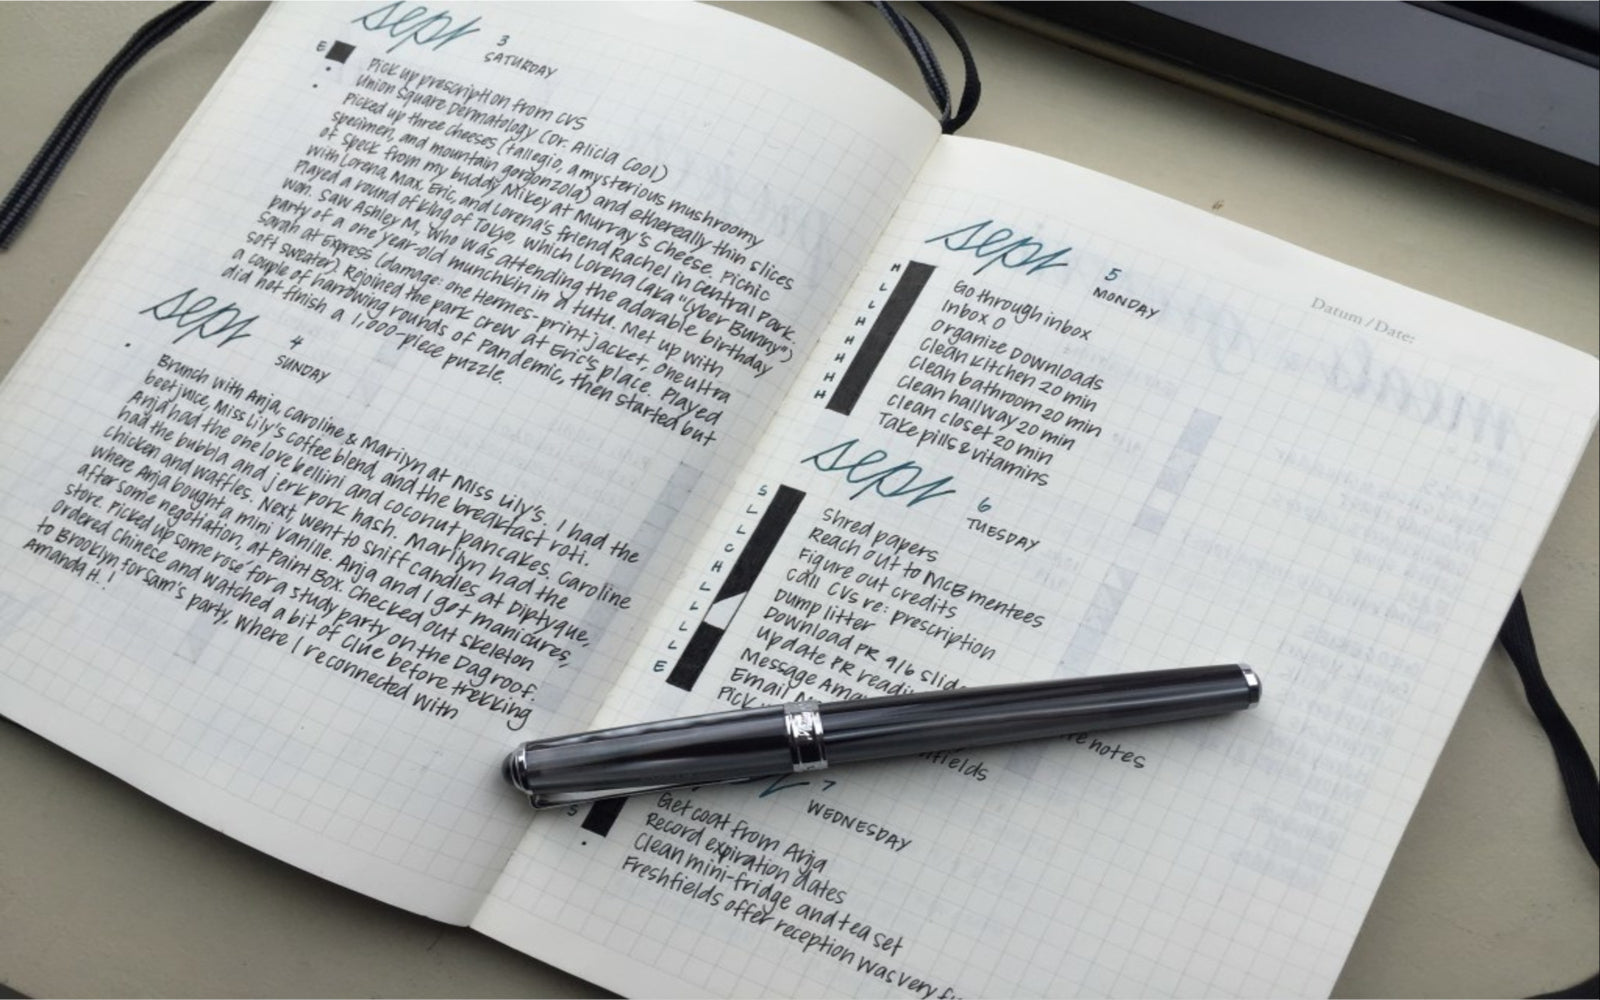 sept 3
SATURDAY
E
Pick up prescription from CVS
Union Square Dermatology (Dr. Alicia Cool)
Picked up three cheeses (tallegio, a mysterious mushroomy
specimen, and mountain gorgonzola) and ethereally thin slices
of speck from my buddy Mikey at Murray's Cheese. Picnic
with Lorena, Max, Eric, and Lorena's friend Rachel in Central Park.
Played a round of King of Tokyo, which Lorena (aka "Cyber Bunny")
won. Saw Ashley M, who was attending the adorable birthday
party of a one year-old munchkin in a tutu. Met up with
Sarah at Express (damage: one Hermes-print jacket, one ultra
soft sweater). Rejoined the park crew at Eric's place. Played
a couple of harrowing rounds of Pandemic, then started but
did not finish a 1,000-piece puzzle.
sept 4
SUNDAY
Brunch with Anja, Caroline & Marilyn at Miss Lily's. I had the
beet juice, Miss Lily's coffee blend, and the breakfast roti.
Anja had the one love bellini and coconut pancakes, Caroline
had the bubbla and jerk pork hash. Marilyn had the
chicken and waffles. Next, went to sniff candles at Diptyque,
where Anja bought a mini Vanille. Anja and I got manicures,
after some negotiation, at Paint Box. Checked out skeleton
store. Picked up some rosé for a study party on the Dag roof.
Ordered Chinese and watched a bit of Clue before trekking
to Brooklyn for Sam's party, where I reconnected with
Amanda H.!
Datum / Date:
sept 5
MONDAY
M Go through inbox
L Inbox 0
L Organize Downloads
H Clean kitchen 20 min
H Clean bathroom 20 min
H Clean hallway 20 min
H Clean closet 20 min
H Take pills & vitamins
sept 6
TUESDAY
S Shred papers
L Reach out to McB mentees
L Figure out credits
C Call CVS re: prescription
H Dump litter
L Download PR 9/6 slid
L Update PR readi
L Message Ama
L Email
E Pick
re notes
hfields
7
WEDNESDAY
S Get coat from Anja
Record expiration dates
Clean mini-fridge and tea set
Freshfields offer reception was very